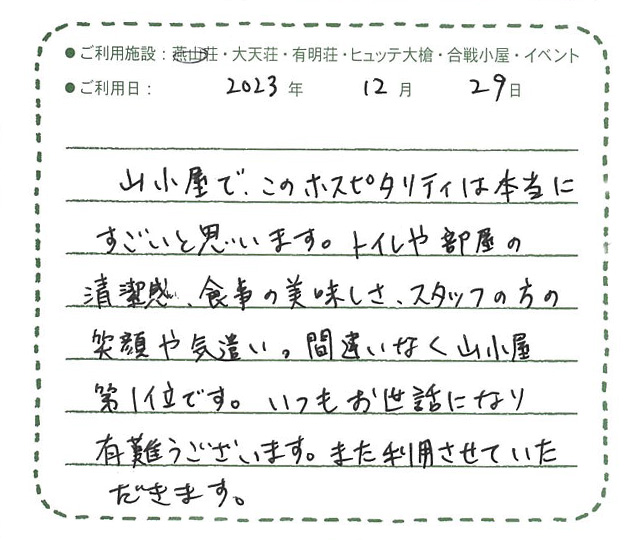 ● ご利用施設：燕山荘・大天荘・有明荘・ヒュッテ大槍・合戦小屋・イベント
● ご利用日： 2023 年 12 月 29 日
山小屋で、このホスピタリティは本当に
すごいと思います。トイレや部屋の
清潔感、食事の美味しさ、スタッフの方の
笑顔や気遣い。間違いなく山小屋
第1位です。いつもお世話になり
有難うございます。また利用させていた
だきます。